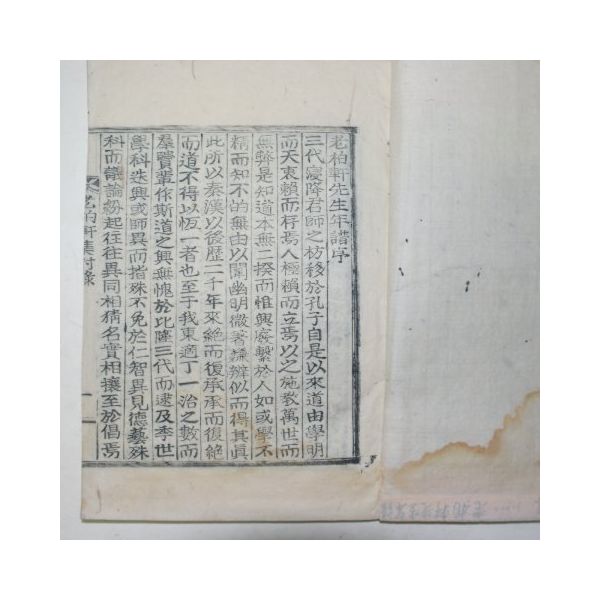 老柏軒先生年譜序
三代寖降君師之枋移於孔子自是以來道由學明
而天衷賴而枰焉人極賴而立焉以之施敎萬世而
無弊是知道本無二揆而惟興廢繫於人如或學不
精而知不的無由以闡幽明微著疑辨似而得其眞
此所以秦漢以後歷二千年來絶而復承承而復絶
而道不得以恆一者也至于我東適丁一治之數而
羣賢輩作斯道之興無愧於比隆三代而逮及季世
學科迭興或師異而指殊不免於仁智異見德藝殊
科而議論紛起往往異同相猜名實相攘至於倡焉
老柏軒集附錄